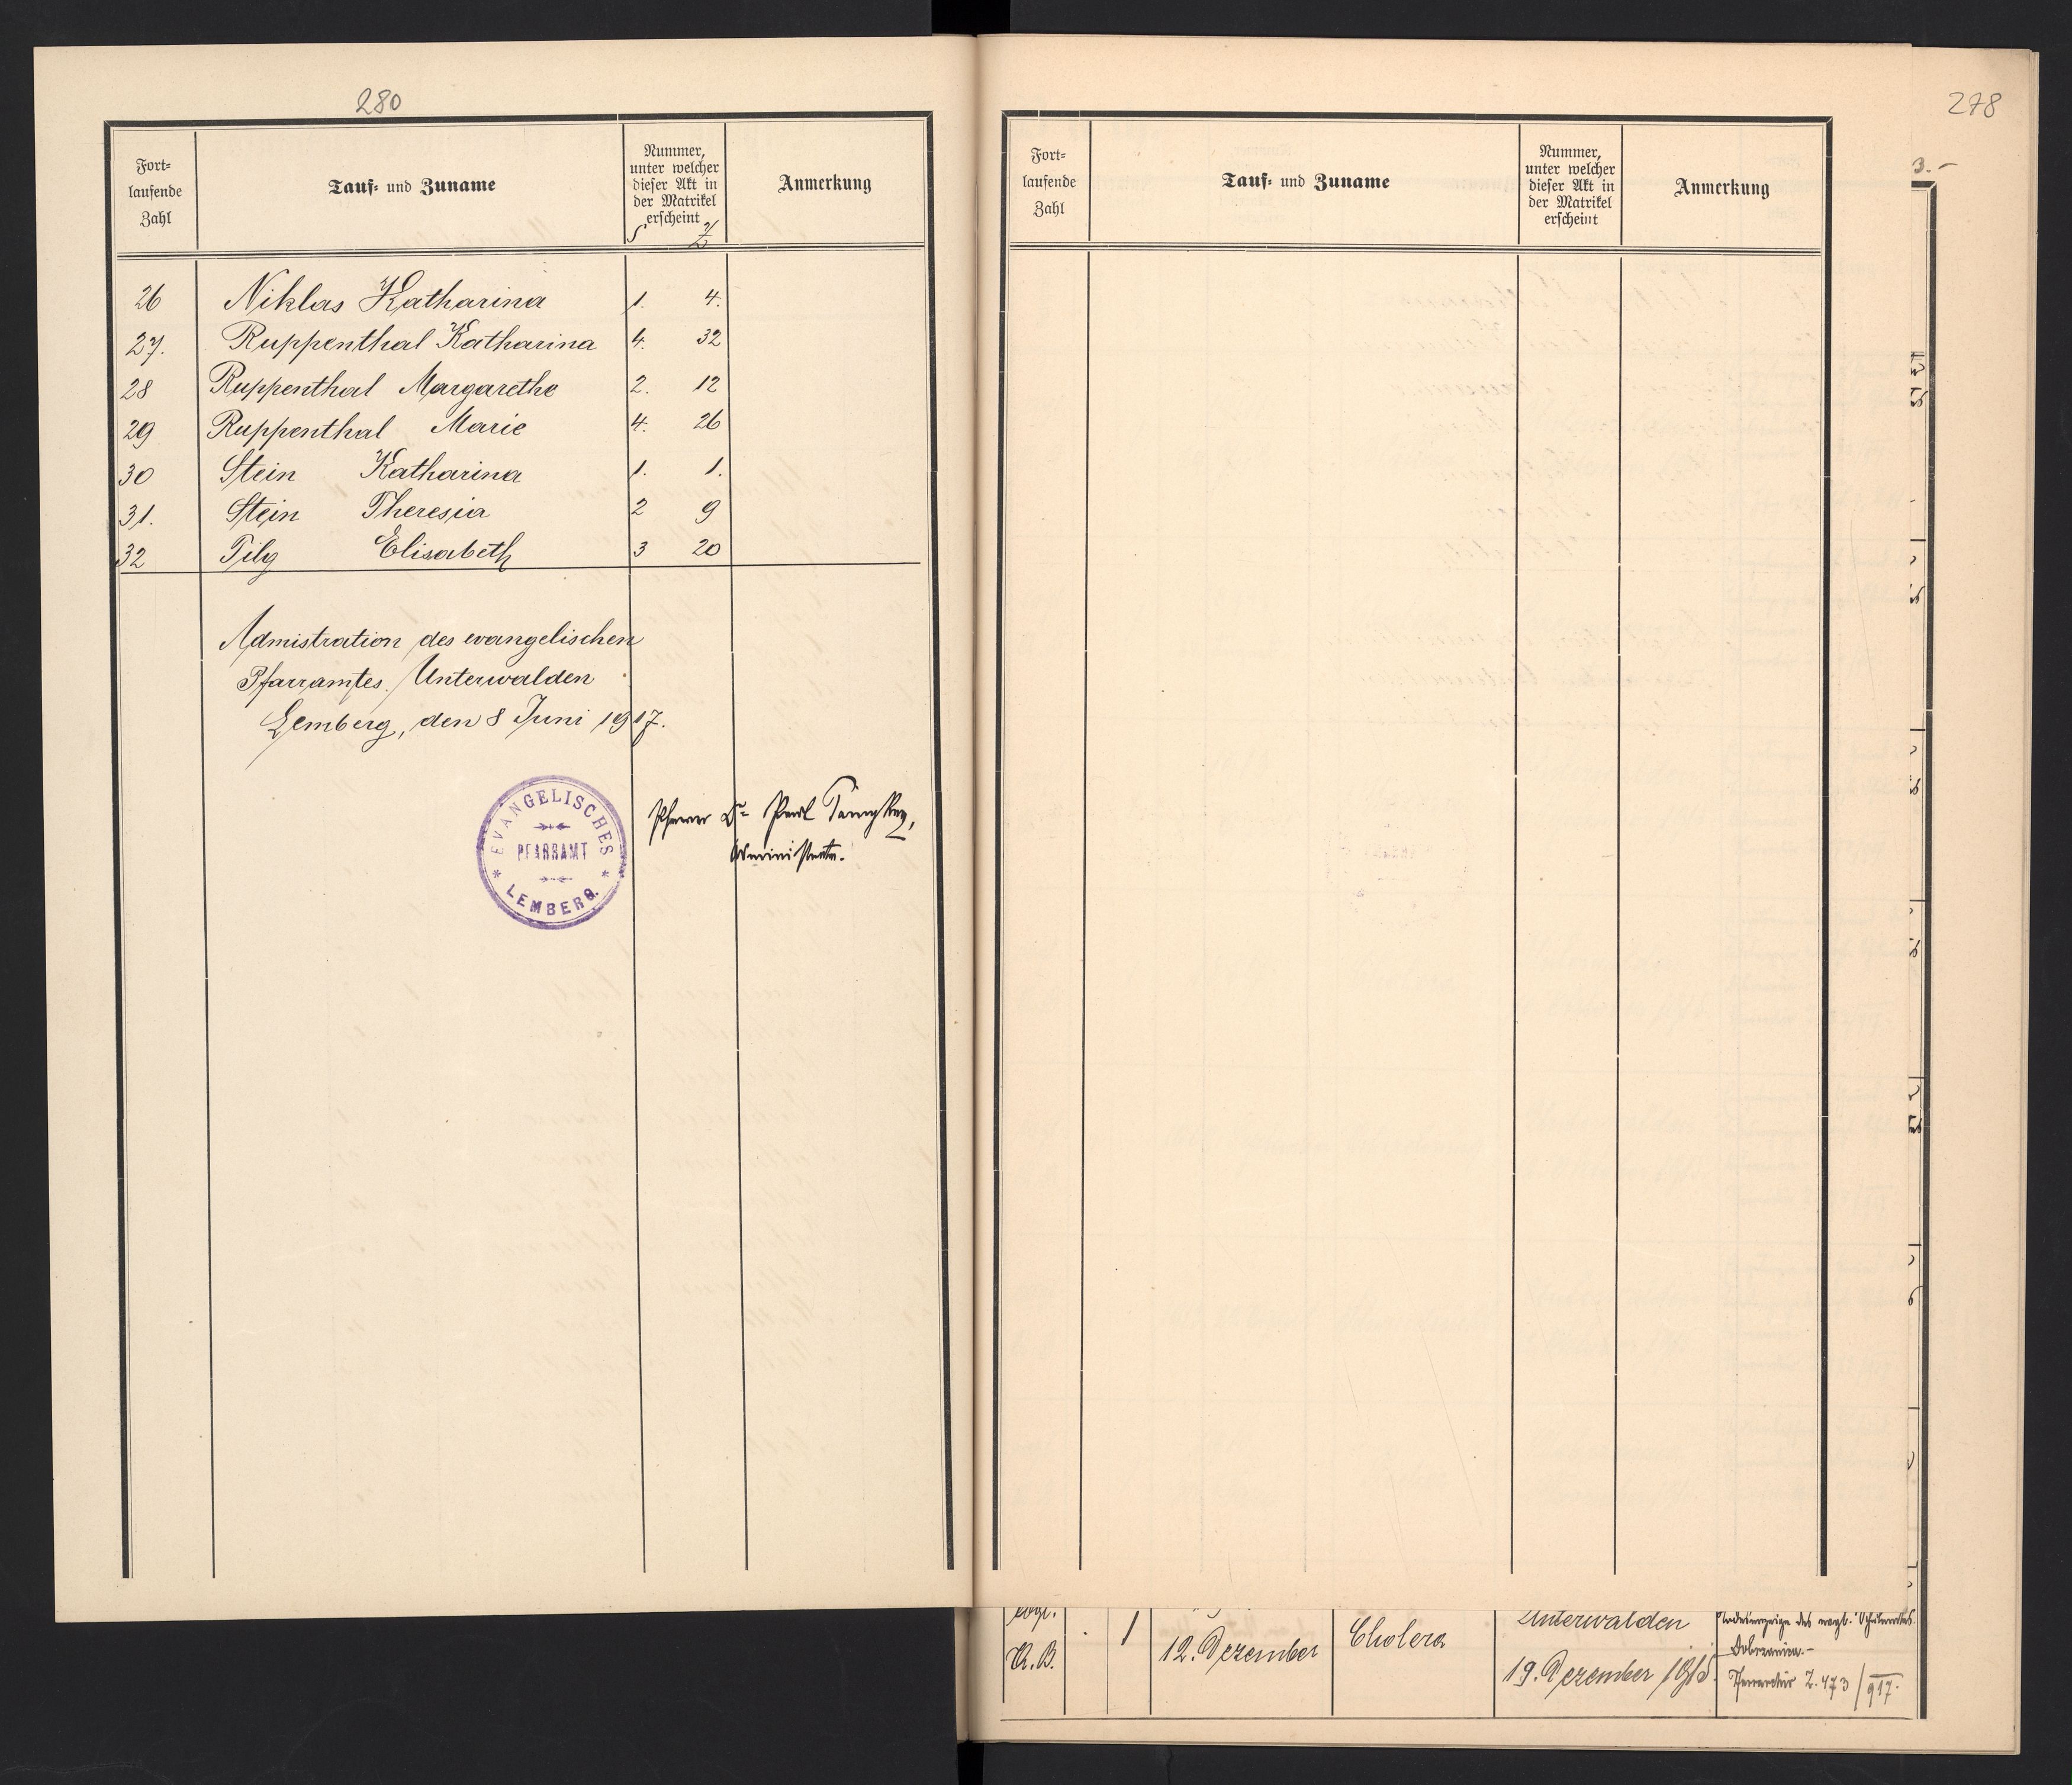 280
Fort=
laufende
Zahl
Tauf= und Zuname
Nummer,
unter welcher
dieser Akt in
der Matrikel
erscheint
S Z
Anmerkung
26 Niklas Katharina 1. 4.
27. Ruppenthal Katharina 4. 32
28 Ruppenthal Margarethe 2. 12
29 Ruppenthal Marie 4. 26
30 Stein Katharina 1. 1.
31. Stein Theresia 2 9
32 Tily Elisabeth 3 20
Admistration des evangelischen
Pfarramtes Unterwalden
Lemberg, den 8 Juni 1917.
EVANGELISCHES
PFARRAMT
LEMBERG.
Pfarrer Dr Paul
Administrator.
278
3.-
Fort=
laufende
Zahl
Tauf= und Zuname
Nummer,
unter welcher
dieser Akt in
der Matrikel
erscheint
Anmerkung
evgl. Unterwalden Todesanzeige des evgl. Schulamtes
A.B. 1 12. Dezember Cholera Dobrzanica.-
19. Dezember 1915. Z. 473/917.